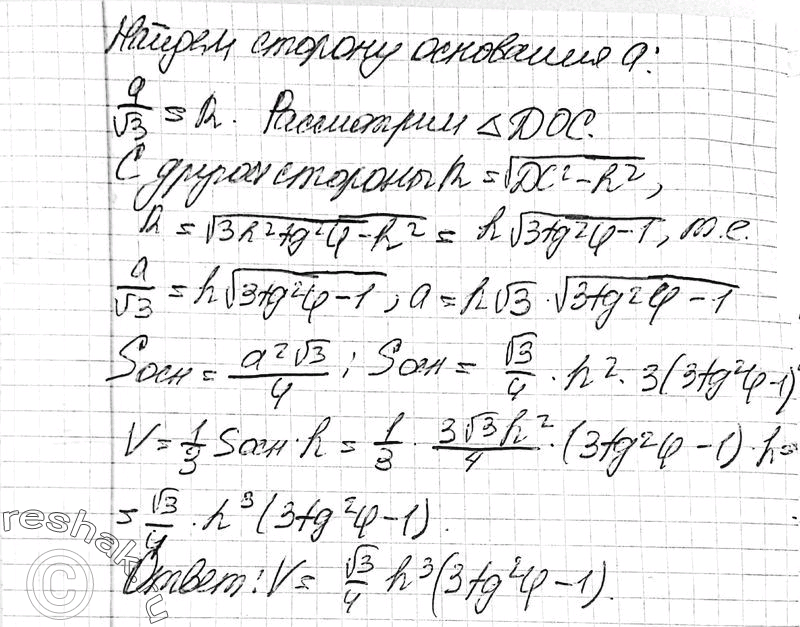 Найдем сторону основания a:
a/√3 = R. Рассмотрим △DOC.
С другой стороны R = √(DC² - h²),
R = √(3h²tg²φ - h²) = h√(3tg²φ - 1), т.е.
a/√3 = h√(3tg²φ - 1); a = h√3 · √(3tg²φ - 1)
Sосн = a²√3/4; Sосн = √3/4 · h² · 3(3tg²φ - 1)
V = 1/3 Sосн · h = 1/3 · 3√3h²/4 · (3tg²φ - 1) · h =
= √3/4 · h³(3tg²φ - 1).
Ответ: V = √3/4 h³(3tg²φ - 1).
reshak.ru
©